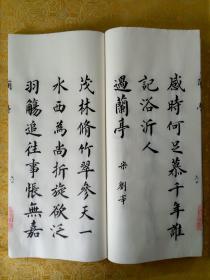 感時何足慕千年誰
記浴沂人
過蘭亭 宋 劉宰
茂林脩竹翠參天一
水西為尚折旋欲泛
羽觴追往事悵無嘉